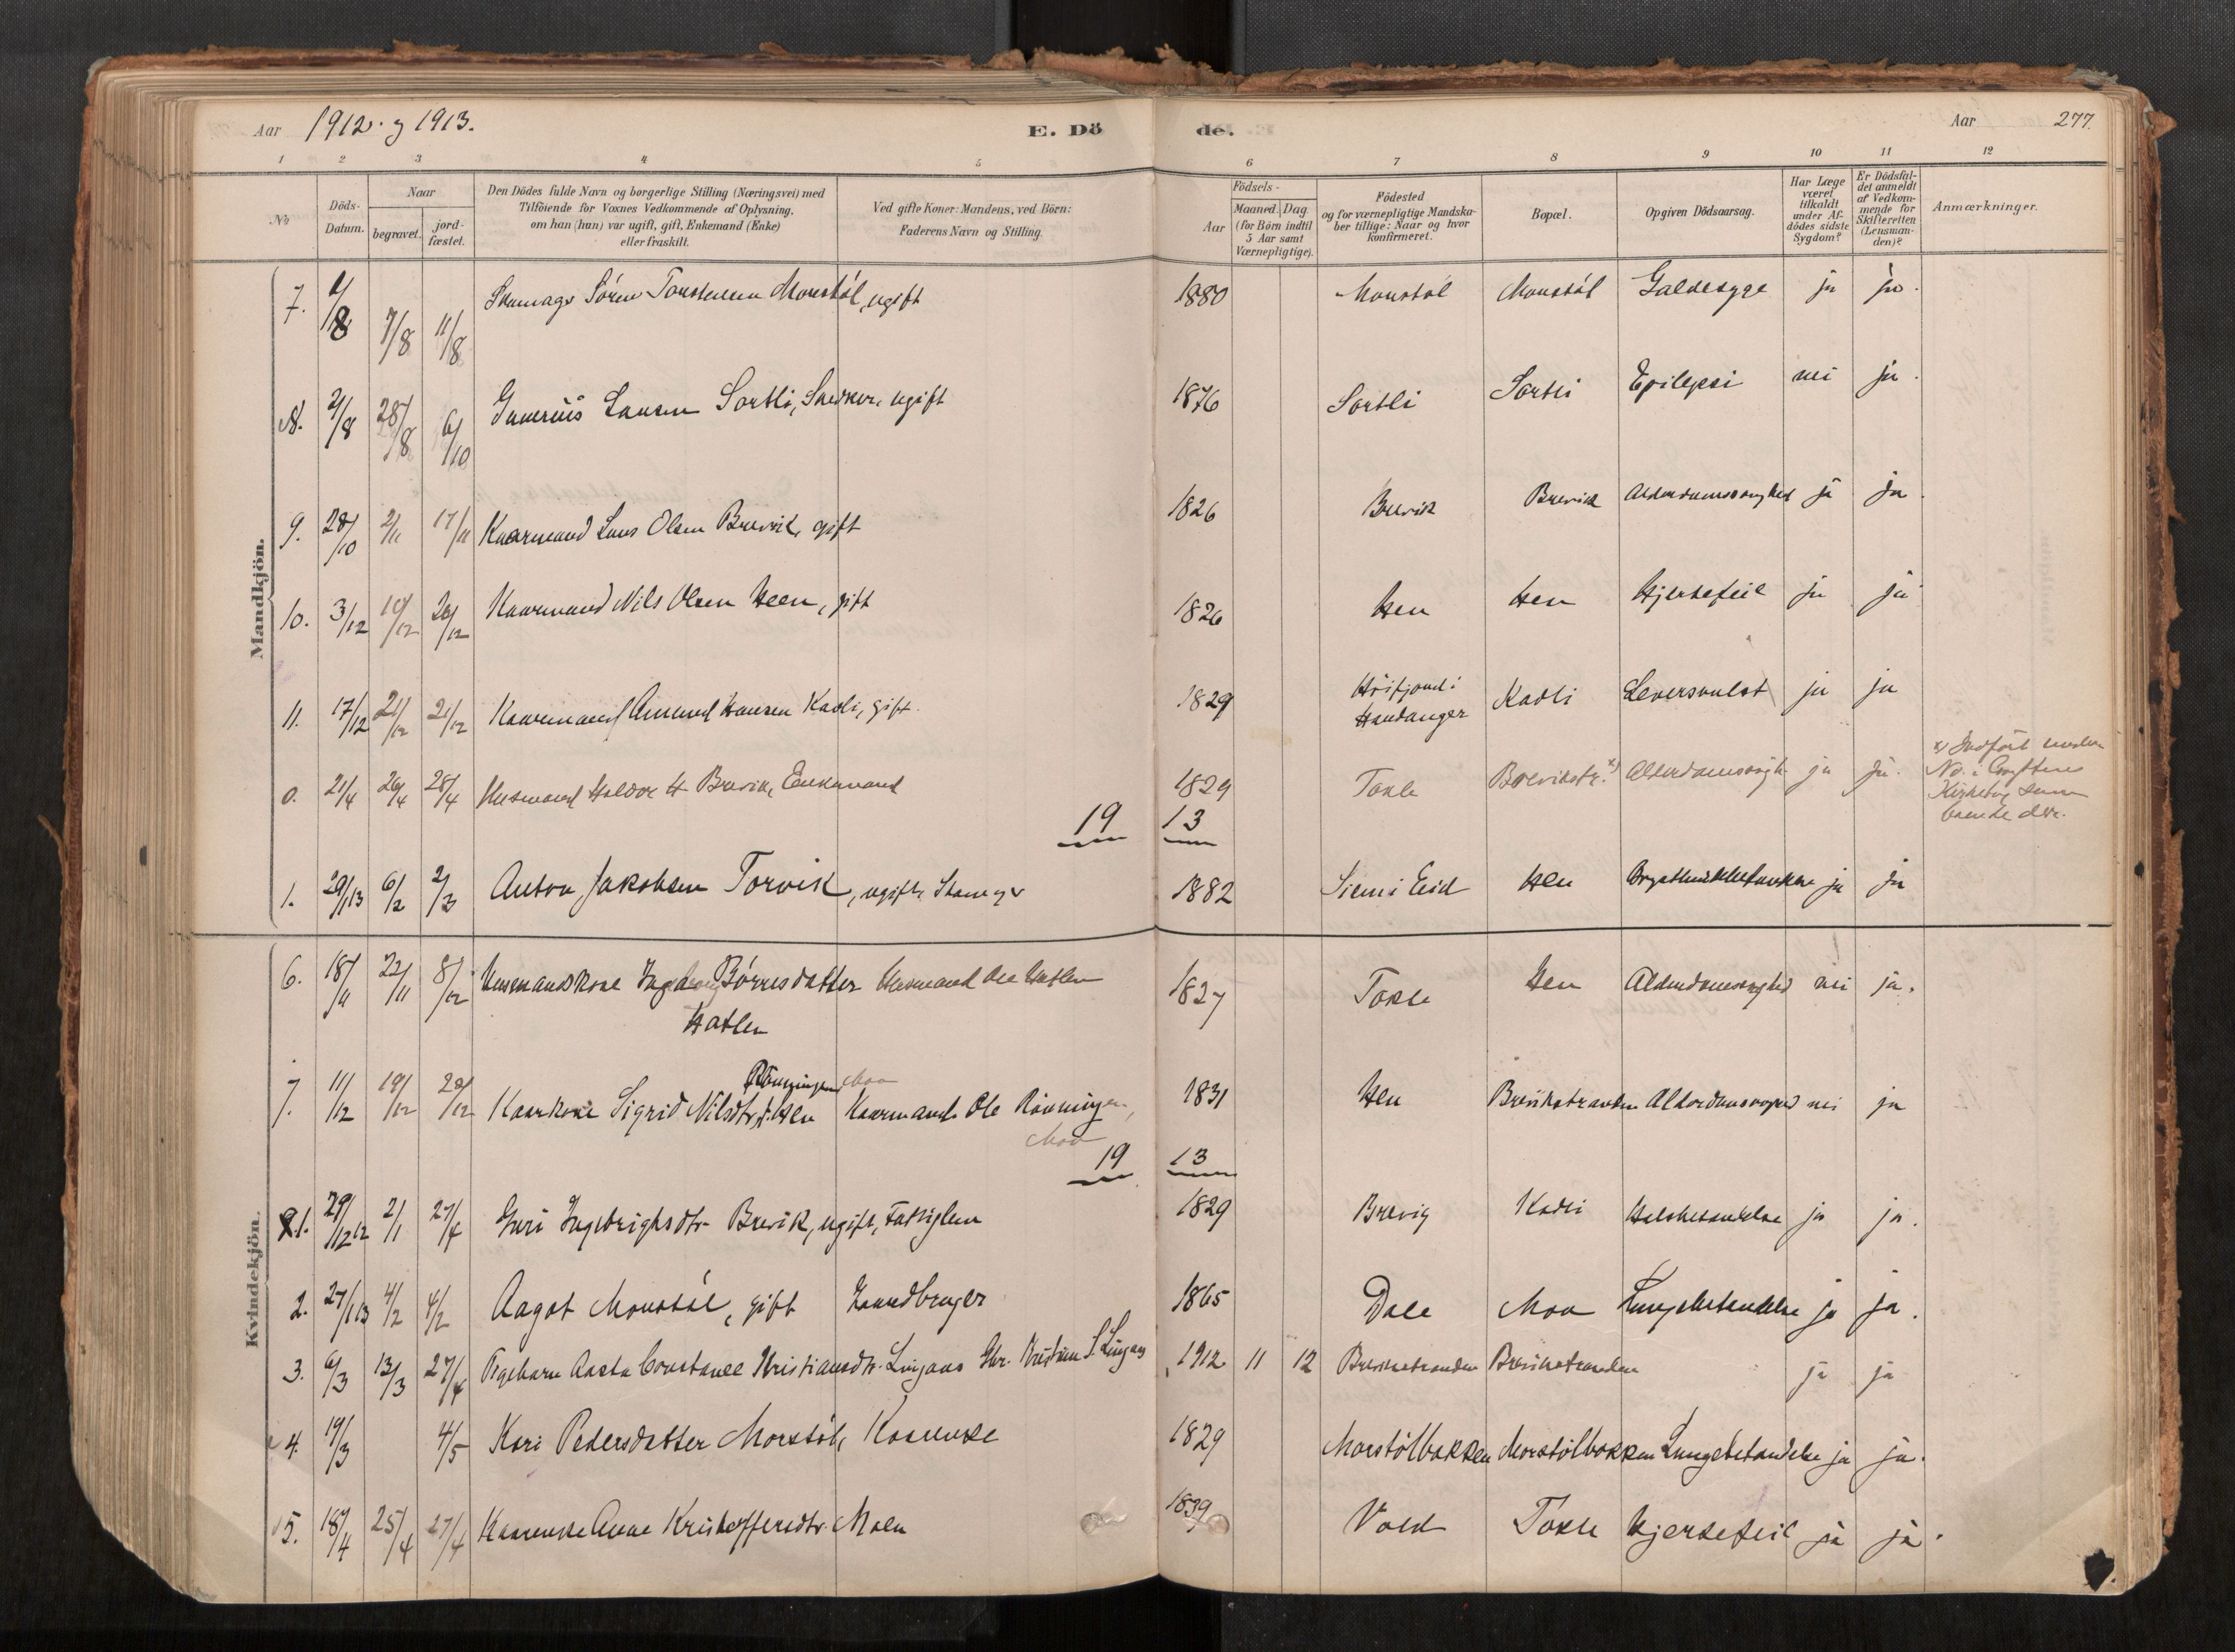 Aar 1912. og 1913.
E. Dö de.
Aar 277.
1 2 3 4 5 6 7 8 9 10 11 12
No
Döds-
Datum.
Naar
begravet.
jord-
fæstet.
Den Dödes fulde Navn og borgerlige Stilling (Næringsvei) med
Tilföiende for Voxnes Vedkommende af Oplysning,
om han (hun) var ugift, gift, Enkemand (Enke)
eller fraskilt.
Ved gifte Koner: Mandens, ved Börn:
Faderens Navn og Stilling.
Födsels-
Aar
Maaned. Dag
(for Börn indtil
5 Aar samt
Værnepligtige).
Födested
og for værnepligtige Mandska-
ber tillige: Naar og hvor
konfirmeret.
Bopæl.
Opgiven Dödsaarsag.
Har Læge
været
tilkaldt
under Af-
dödes sidste
Sygdom?
Er Dödsfal-
det anmeldt
af Vedkom-
mende for
Skifteretten
(Lensman-
den)?
Anmærkninger.
Mandkjön.
7. 7/8 11/8 Sören Monstöl, ugift 1880 Monstöl Monstöl Galdesyge ja ja.
8. 2/8 28/8 6/10 Larsen Sortli, Snedker, ugift 1876 Sortli Sortli Epilepsi nei ja.
9. 28/10 2/11 17/11 Kaarmand Lars Olsen Brevik, gift 1826 Brevik Brevik Alderdomssvaghed ja ja.
10. 3/12 10/12 20/12 Kaarmand Nils Olsen Heen, gift 1826 Hen Hen Hjertefeil ja ja
11. 17/12 21/12 21/12 Kaarmand Amund Hansen Kadli, gift. 1829 Hardanger Kadli Leversvulst ja ja
0. 21/4 26/4 28/4 Husmand Haldor H. Brevik, Enkemand 1829 Tokle Brevikstr. x) Alderdomssvagh. ja ja.
x) Indfört under
No. i Grytten
Kirkebog som
boende der.
19 13
1. 29/1 13 6/2 2/3 Anton Jakobsen Torvik, ugift, 1882 Eid Hen ja ja
Kvindekjön.
6. 18/11 22/11 8/12 Husmandskone Ingeborg Börresdatter Husmand Ole Hatlen 1827 Tokle Hen Alderdomssvaghed nei ja.
Hatlen
Rönningen Moa
7. 11/12 19/12 28/12 Kaarkone Sigrid Nilsdtr. Hen Kaarmand Ole Rönningen, 1831 Hen Brevikstranden Alderdomssvaghed nei ja
Moa
19 13
1. 29/12 12 2/1 27/4 Guri Ingebrigtsdtr. Brevik, ugift, Fattiglem 1829 Brevig Kadli Halsbetændelse ja ja.
2. 27/1 13 4/2 4/2 Aagot Monstöl, gift Gaardbruger 1865 Dale Moa Lungebetændelse ja ja.
3. 6/3 13/3 27/4 Pigebarn Aasta Constance Kristiansdtr. Lingaas Gbr. Kristian S. Lingaas 1912 11 12 Brevikstranden Brevikstranden ja ja
4. 19/3 4/5 Kari Pedersdatter Morstöl, Kaarenke 1829 Morstölbakken Morstölbakken Lungebetændelse ja ja.
5. 18/4 25/4 27/4 Kaarenke Anne Kristoffersdtr. Moen 1839 Vold Tokle Hjertefeil ja ja.